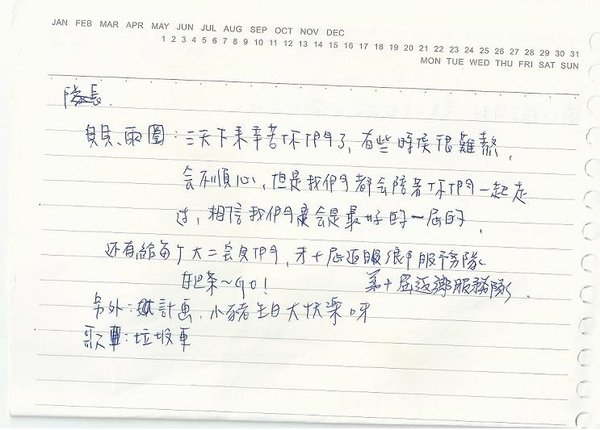 JAN FEB MAR APR MAY JUN JUL AUG SEP OCT NOV DEC
1 2 3 4 5 6 7 8 9 10 11 12 13 14 15 16 17 18 19 20 21 22 23 24 25 26 27 28 29 30 31
MON TUE WED THU FRI SAT SUN
隊長.
貝貝、雨圈:三天下來辛苦你們了,有些時候很難熬,
會不順心,但是我們都會陪著你們一起走
過,相信我們會是最好的一屆的.
还有給每个大二会員們,才十屆返鄉服務隊
吧~GO!
第十屆返鄉服務隊
另外:計画,小豬生日大快樂呀
歌單:垃圾車